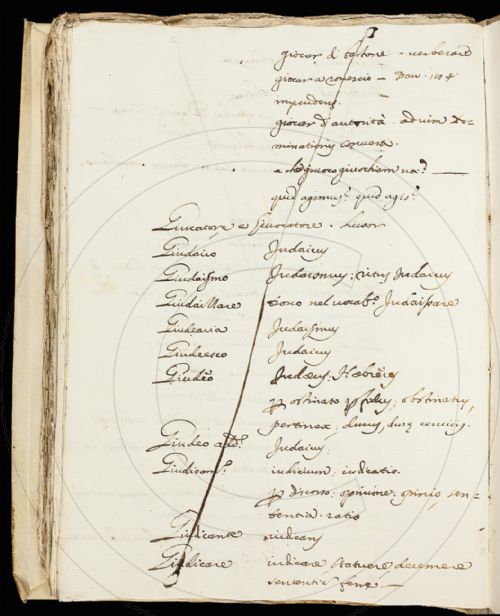 giocar di bastone - verberare
giocar a rovescio -
impudens.
giocar d'autorità. ad vim do-
minationis
a che giuoco giuochiamo noi?
quid agimus? quid agis?
Giucatore e Giuocatore. Lusor
Giudaico Judaicus
Giudaismo Judaismus; ritus Judaicus
Giudaizzare nel vocabo
Giudearia Judaismus
Giudeesco Judaicus
Giudeo Judæus; Hebræus
ostinato obstinatus,
pertinax; durus,
Giudeo add. Judaicus
iudicium. iudicatio.
discorso; opinione; opinio, sen-
tentia. ratio
Giudicante iudicans
Giudicare iudicare statuere decernere
sententia ferre